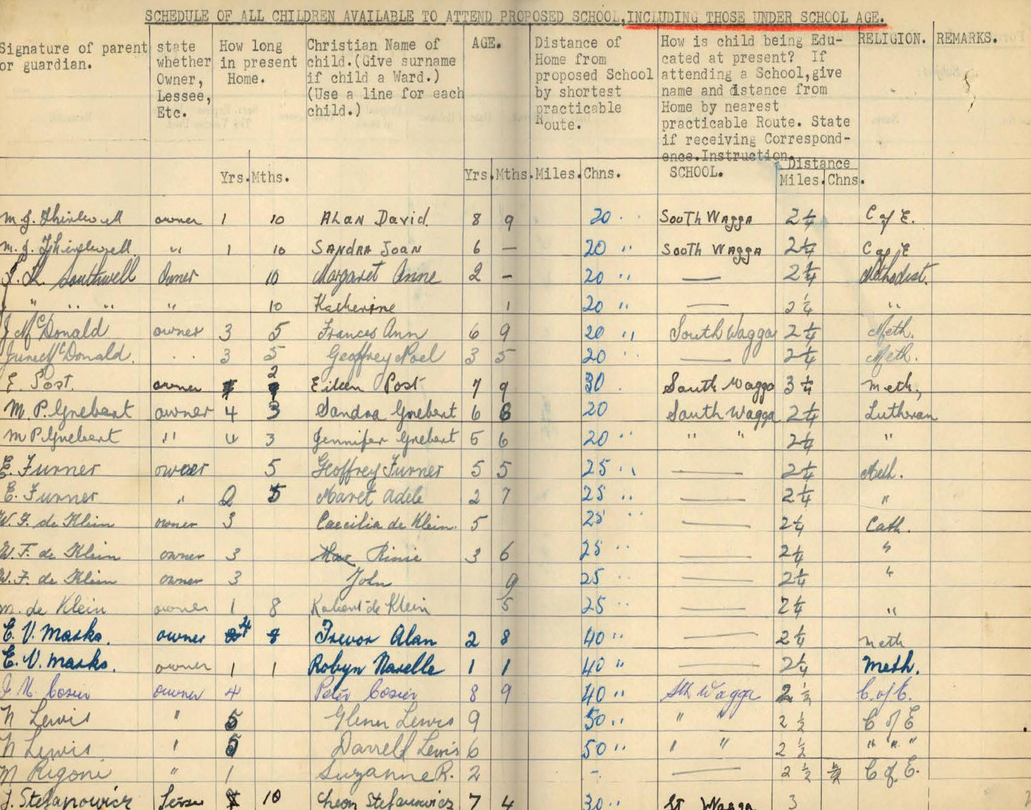 SCHEDULE OF ALL CHILDREN AVAILABLE TO ATTEND PROPOSED SCHOOL, INCLUDING THOSE UNDER SCHOOL AGE.
Signature of parent or guardian.
state whether Owner, Lessee, Etc.
How long in present Home.
Christian Name of child.(Give surname if child a Ward.) (Use a line for each child.)
AGE.
Distance of Home from proposed School by shortest practicable Route.
How is child being Educated at present? If attending a School,give name and distance from Home by nearest practicable Route. State if receiving Correspondence.Instruction.
RELIGION.
REMARKS.
Yrs. Mths. Yrs. Mths. Miles. Chns. SCHOOL. Distance Miles. Chns.
M. J. owner 1 10 ALAN David. 8 9 20 " South Wagga 2¼ C of E.
M. J. " 1 10 SANDRA JOAN 6 — 20 " South Wagga 2¼ C of E
L. Southwell Owner 10 Margaret Anne 2 - 20 " — 2¼ Methodist.
" " " " 10 Katherine 1 20 " — 2¼ "
J McDonald owner 3 5 Frances Ann 6 9 20 " South Wagga 2¼ Meth.
June McDonald. " 3 5 Geoffrey Noel 3 5 20 " — 2¼ Meth.
E. Post. owner 2 Eileen Post 7 9 30. South Wagga 3¼ Meth,
M. P. Gnebert owner 4 3 Sandra Gnebert 6 20 South Wagga 2¼ Lutheran
M P Gnebert " 4 3 Jennifer Gnebert 5 6 20 " " " 2¼ "
E. Furner owner 5 Geoffrey Furner 5 5 25 " — 2¼ Meth.
E. Furner " 5 Adele 2 7 25 " — 2¼ "
W. F. de Klein owner 3 Caecilia de Klein. 5 25 " — 2¼ Cath.
W. F. de Klein owner 3 Rinie 3 6 25 " — 2¼ "
W. F. de Klein owner 3 John 9 25 " — 2¼ "
M. de Klein owner 1 8 Robert de Klein 5 25 " — 2¼ "
E. V. Marks. owner Trevor Alan 2 8 40 " — 2¼ Meth
E. V. Marks. owner 1 1 Robyn Narelle 1 1 40 " — 2¼ Meth.
Cosier owner 4 Peter Cosier 8 9 40 " Sth Wagga C. of E.
N Lewis " 5 Glenn Lewis 9 50 " " " 2½ C of E
N Lewis " 5 Darrell Lewis 6 50 " " " 2½ " " "
M Rigoni " 1 Suzanne R. 2 - — 2½ C of E.
J. Stefanowicz 10 Stefanowicz 7 4 30 " St Wagga 3